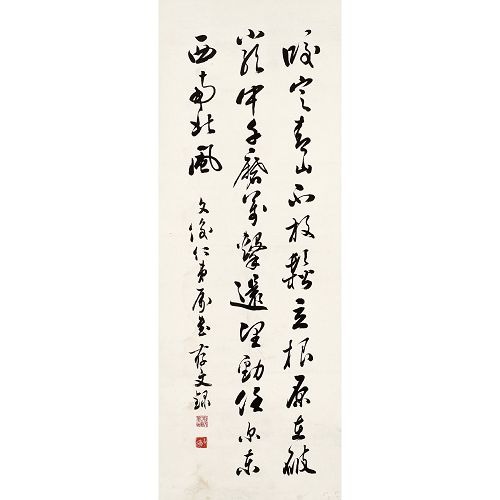 咬定青山不放鬆立根原在破
巖中千磨萬擊還堅勁任尔東
西南北風
文俊仁弟屬書